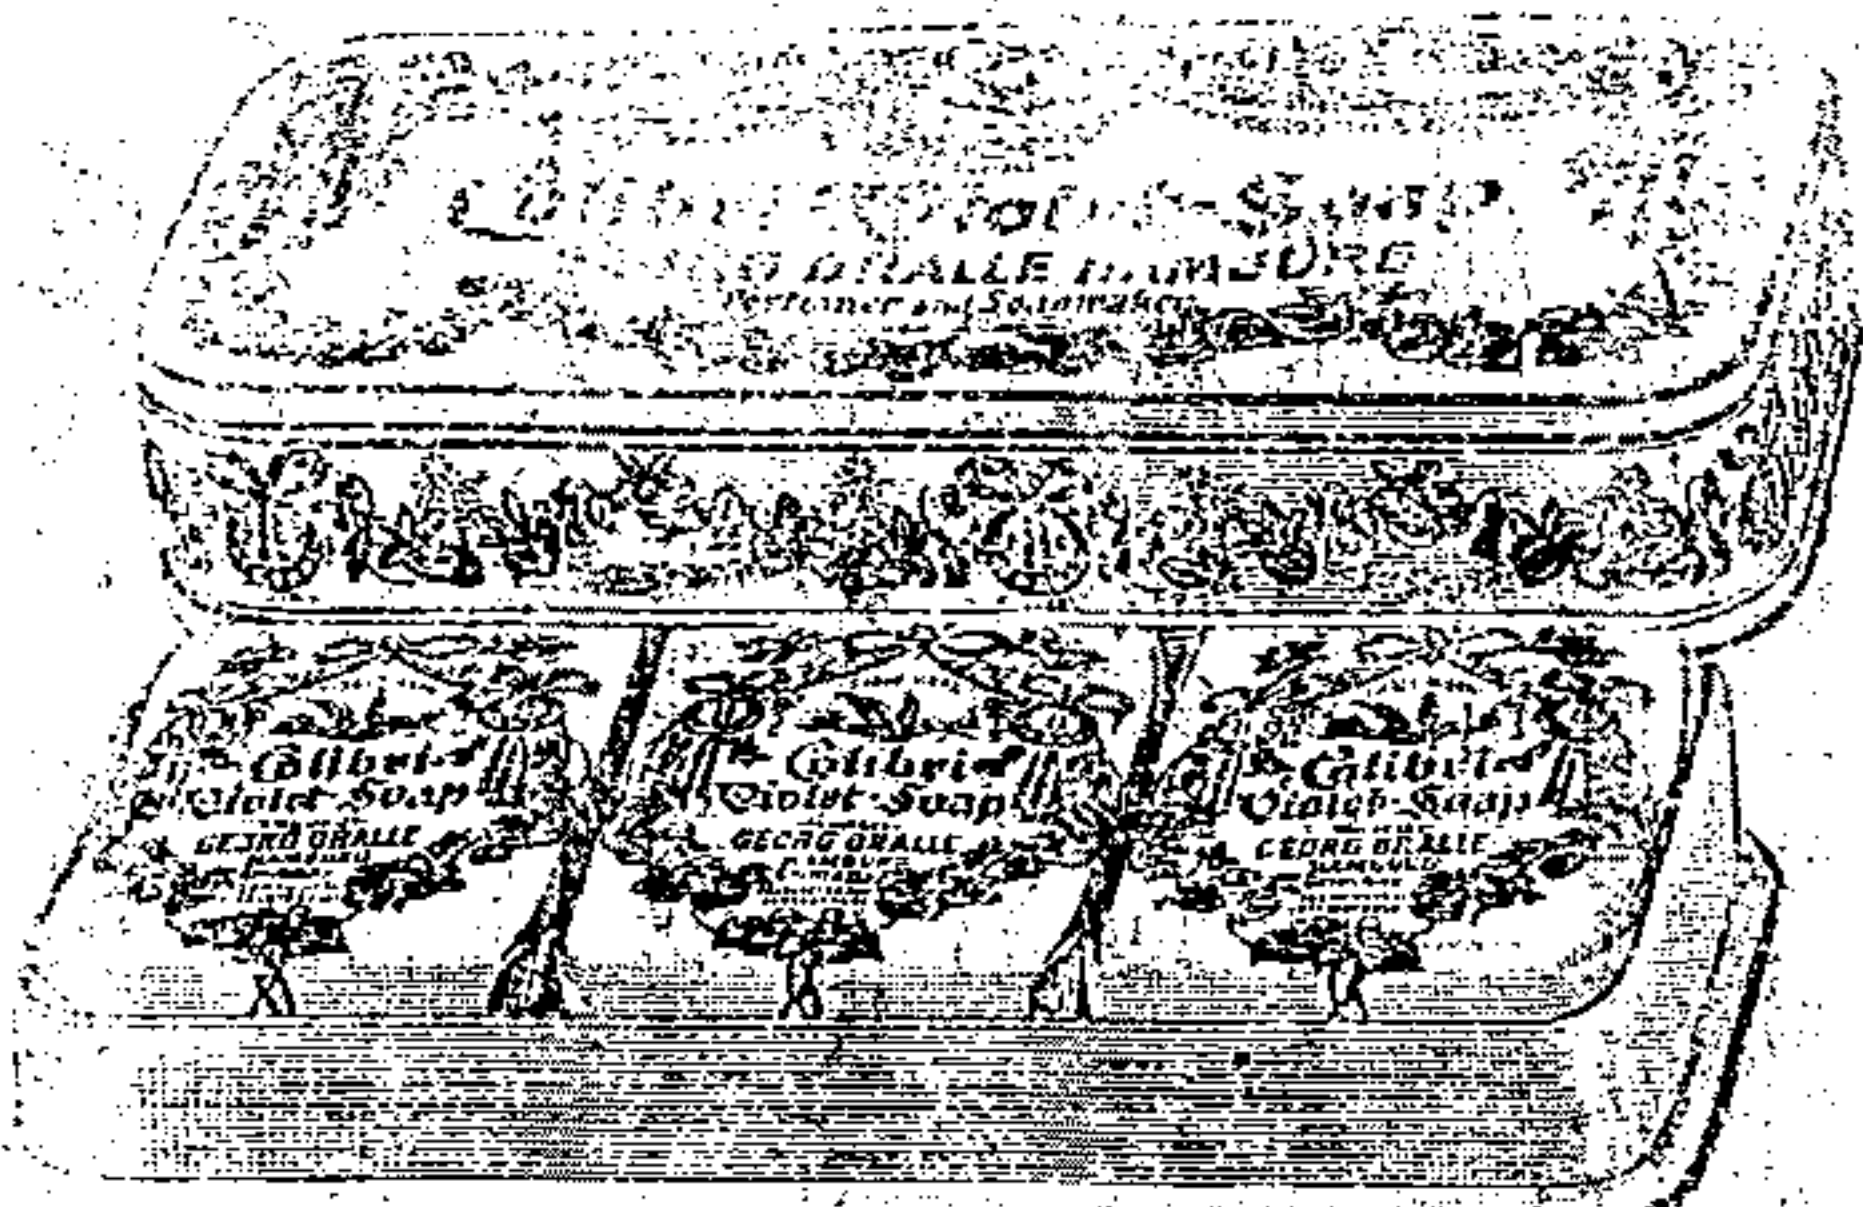 Colibri Violet-Soap
GEORG DRALLE HAMBURG
Perfumer and Soapmaker
Colibri
Violet-Soap
GEORG DRALLE
HAMBURG
Colibri
Violet-Soap
GEORG DRALLE
HAMBURG
Colibri
Violet-Soap
GEORG DRALLE
HAMBURG